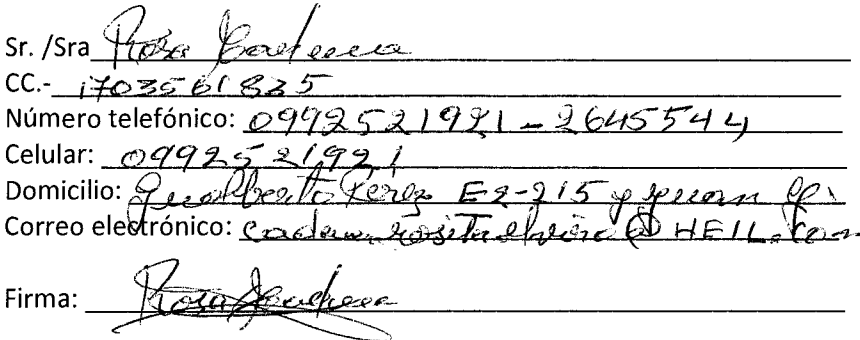 Sr. /Sra Rosa Cadena
CC.- 1703561835
Número telefónico: 0992521921 - 2645544
Celular: 0992521921
Domicilio: Gualberto Pérez E2-215 y
Correo electrónico:
Firma: Rosa Cadena